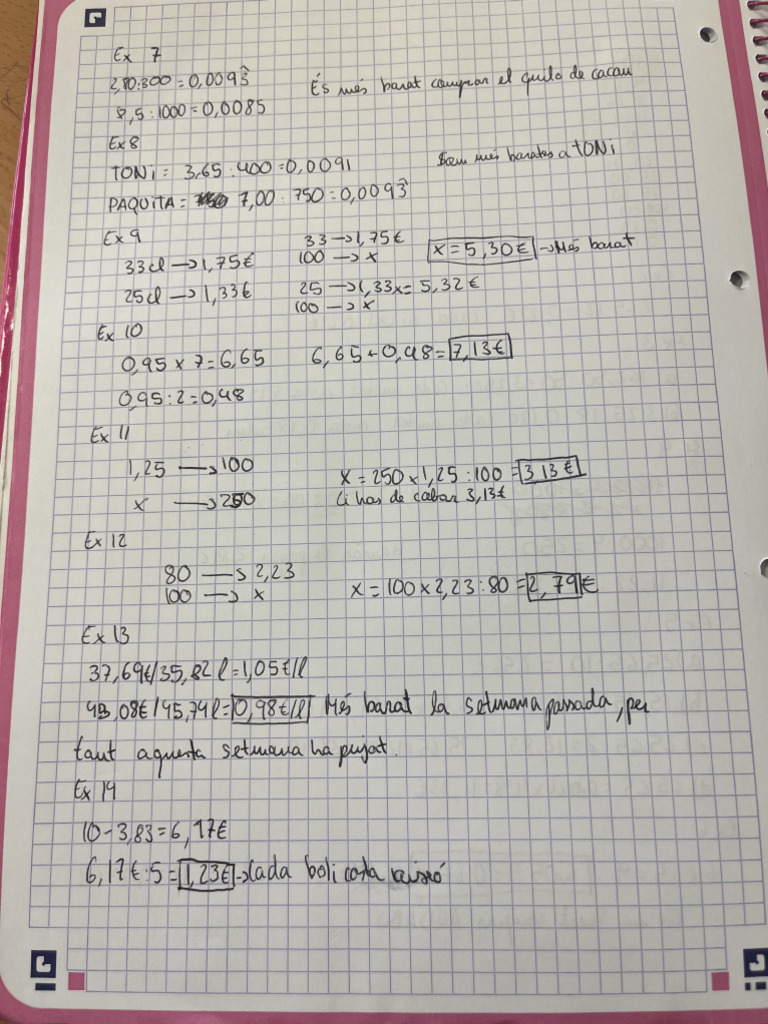 Ex 7
2,80:300=0,0093̂
És més barat comprar el quilo de cacau
8,5:1000=0,0085
Ex 8
TONi= 3,65:400=0,0091
Són més barates a TONi
PAQUiTA= 7,00:750=0,0093̂
Ex 9
33cl→1,75€
33→1,75€
100→x
x=5,30€→Més barat
25cl→1,33€
25→1,33
x=5,32€
100→x
Ex 10
0,95x7=6,65
6,65+0,48=7,13€
0,95:2=0,48
Ex 11
1,25→100
x→250
x=250x1,25:100=3,13€
Li has de cobrar 3,13€
Ex 12
80→2,23
100→x
x=100x2,23:80=2,79€
Ex 13
37,69€/35,82l=1,05€/l
43,08€/45,74l=0,98€/l Més barat la setmana passada, per
tant aquesta setmana ha pujat.
Ex 14
10-3,83=6,17€
6,17€:5=1,23€→Cada boli costa